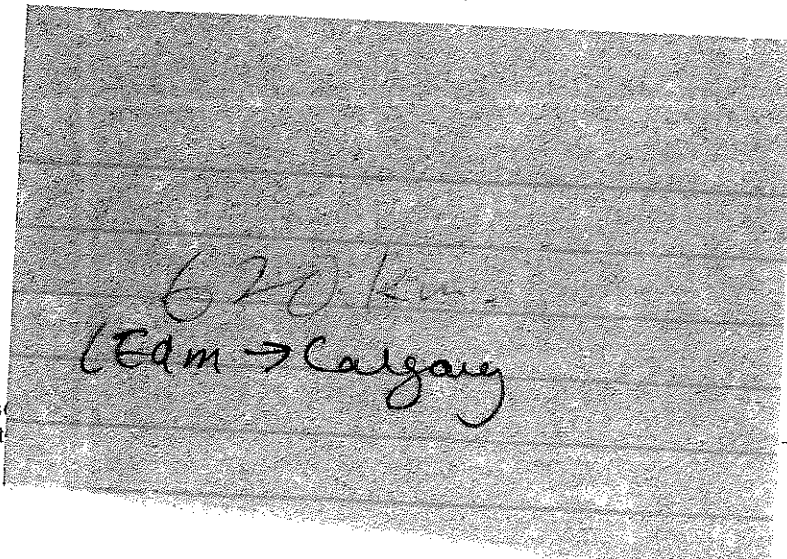 620 km.
(Edm → Calgary